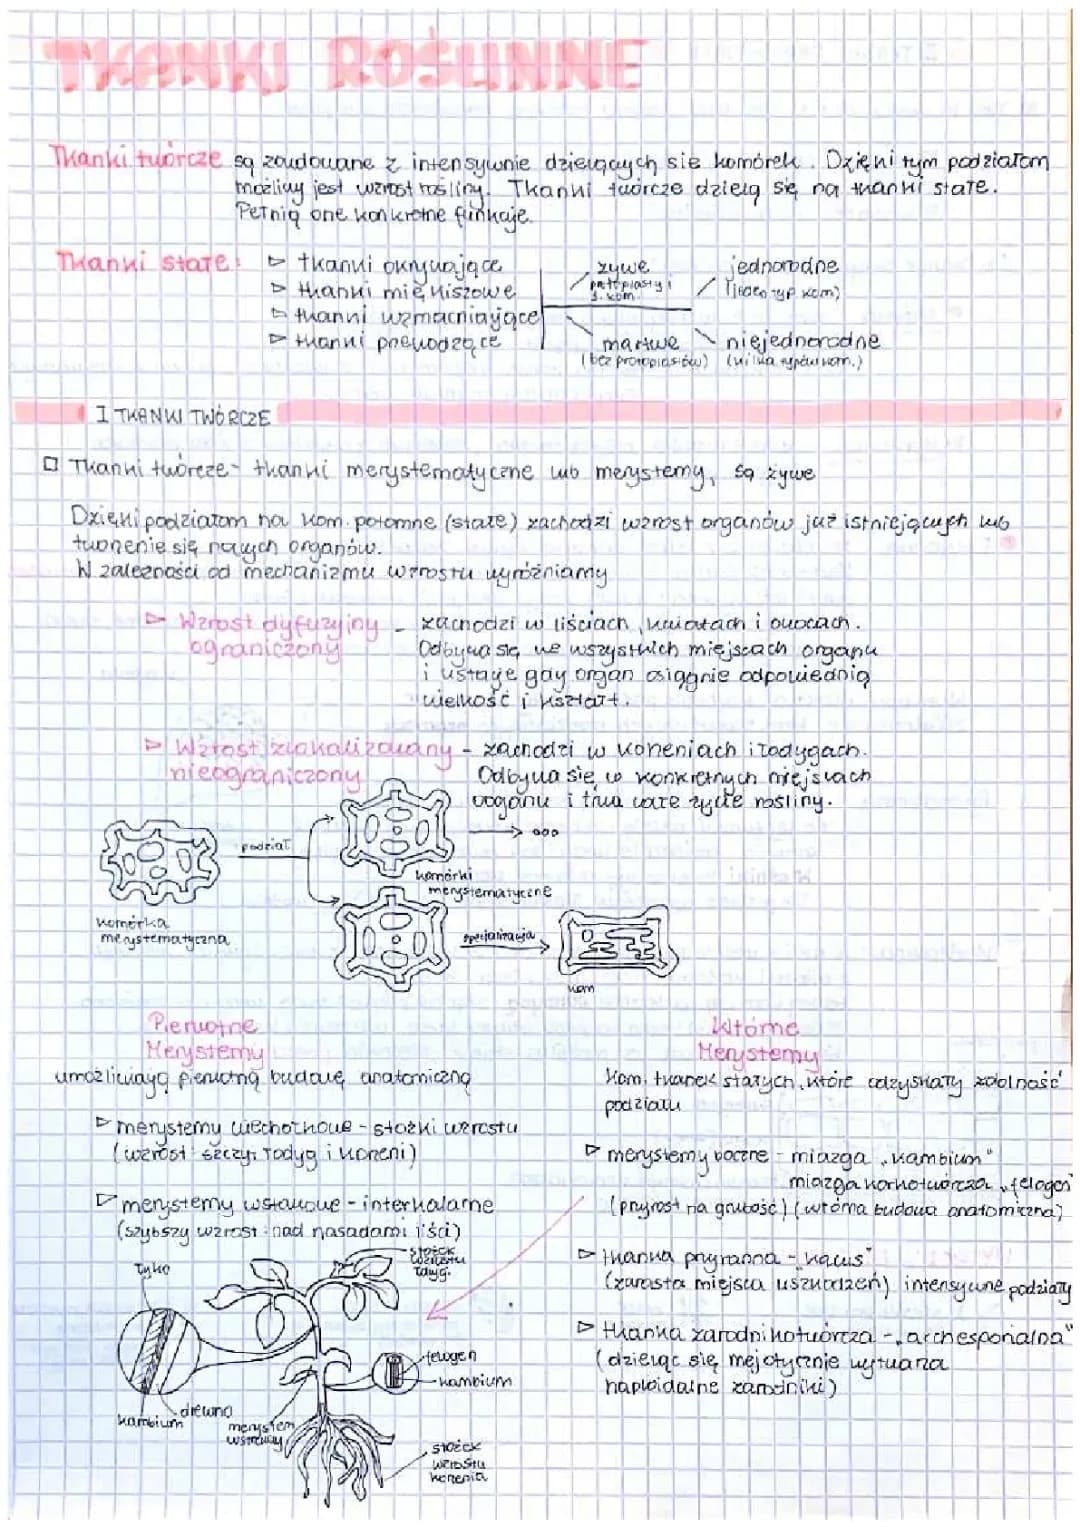 TKANKI ROŚLINNE
Tkanki twórcze są zbudowane z intensywnie dzielących się komórek. Dzięki tym podziałom
możliwy jest wzrost rośliny. Tkanki twórcze dzielą się na tkanki stałe.
Pełnią one konkretne funkcje.
Tkanki stałe: ▷ tkanki okrywające
▷ tkanki miękiszowe
▷ tkanki wzmacniające
▷ tkanki przewodzące
żywe
protoplasty i
ż. kom.
jednorodne
(jeden typ kom)
martwe
(bez protoplastów)
niejednorodne
(kilka typów kom.)
I TKANKI TWÓRCZE
□ Tkanki twórcze - tkanki merystematyczne lub merystemy, są żywe
Dzięki podziałom na kom. potomne (stałe) zachodzi wzrost organów już istniejących lub
tworzenie się nowych organów.
W zależności od mechanizmu wzrostu wyróżniamy
▷ Wzrost dyfuzyjny - zachodzi w liściach, kwiatach i owocach.
ograniczony Odbywa się we wszystkich miejscach organu
i ustaje gdy organ osiągnie odpowiednią
wielkość i kształt.
▷ Wzrost zlokalizowany - zachodzi w korzeniach i łodygach.
nieograniczony Odbywa się w konkretnych miejscach
organu i trwa całe życie rośliny.
podział
komórki
merystematyczne
komórka
merystematyczna
specjalizacja
kom
Pierwotne
Merystemy
umożliwiają pierwotną budowę anatomiczną
▷ merystemy wierzchołkowe - stożki wzrostu
(wzrost: szczyt łodyg i korzeni)
▷ merystemy wstawowe - interkalarne
(szybszy wzrost: nad nasadami liści)
Wtórne
Merystemy
Kom. tkanek stałych, które odzyskały zdolność
podziału
▷ merystemy boczne - miazga „kambium"
miazga korkotwórcza „felogen
(przyrost na grubość) (wtórna budowa anatomiczna)
▷ tkanka przyranna - „kalus"
(zarasta miejsca uszkodzeń) intensywne podziały
▷ tkanka zarodnikotwórcza - „archesporialna"
(dzieląc się mejotycznie wytwarza
haploidalne zarodniki)
łyko
stożek
wzrostu
łodyg.
felogen
kambium
drewno
kambium
merystem
wstawowy
stożek
wzrostu
korzenia